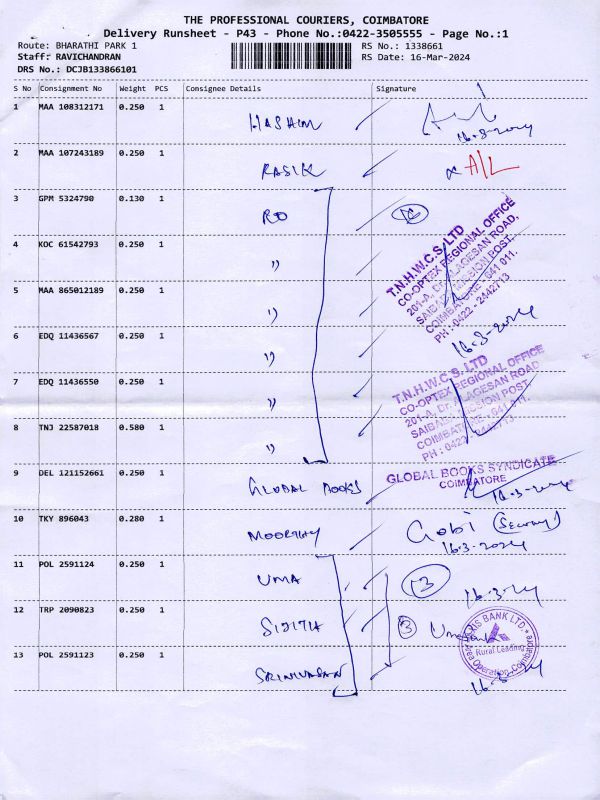 THE PROFESSIONAL COURIERS, COIMBATORE
Delivery Runsheet - P43 - Phone No.:0422-3505555 - Page No.:1
Route: BHARATHI PARK 1 RS No.: 1338661
Staff: RAVICHANDRAN RS Date: 16-Mar-2024
DRS No.: DCJB133866101
S No Consignment No Weight PCS Consignee Details Signature
1 MAA 108312171 0.250 1 HASHIM
16-3-2024
2 MAA 107243189 0.250 1 RASIK A/L
3 GPM 5324790 0.130 1 RO
4 KOC 61542793 0.250 1 "
T.N.H.W.C.S. LTD
CO-OPTEX REGIONAL OFFICE
201-A, Dr. ALAGESAN ROAD,
SAIBABA MISSION POST,
COIMBATORE - 641 011.
PH : 0422 - 2442713
5 MAA 865012189 0.250 1 "
16-3-2024
6 EDQ 11436567 0.250 1 "
7 EDQ 11436550 0.250 1 "
T.N.H.W.C.S. LTD
CO-OPTEX REGIONAL OFFICE
201-A, Dr. ALAGESAN ROAD
SAIBABA MISSION POST,
COIMBATORE - 641 011.
PH : 0422 - 2442713
8 TNJ 22587018 0.580 1 "
9 DEL 121152661 0.250 1 GLOBAL BOOKS
GLOBAL BOOKS SYNDICATE
COIMBATORE
16-3-2024
10 TKY 896043 0.280 1 MOORTHY Gobi (Security)
16-3-2024
11 POL 2591124 0.250 1 UMA 13 16-3-24
12 TRP 2090823 0.250 1 SIJITH 3
AXIS BANK LTD.
Rural Lending
Area Operation Coimbatore
13 POL 2591123 0.250 1 SRINIVASAN 16-3-24